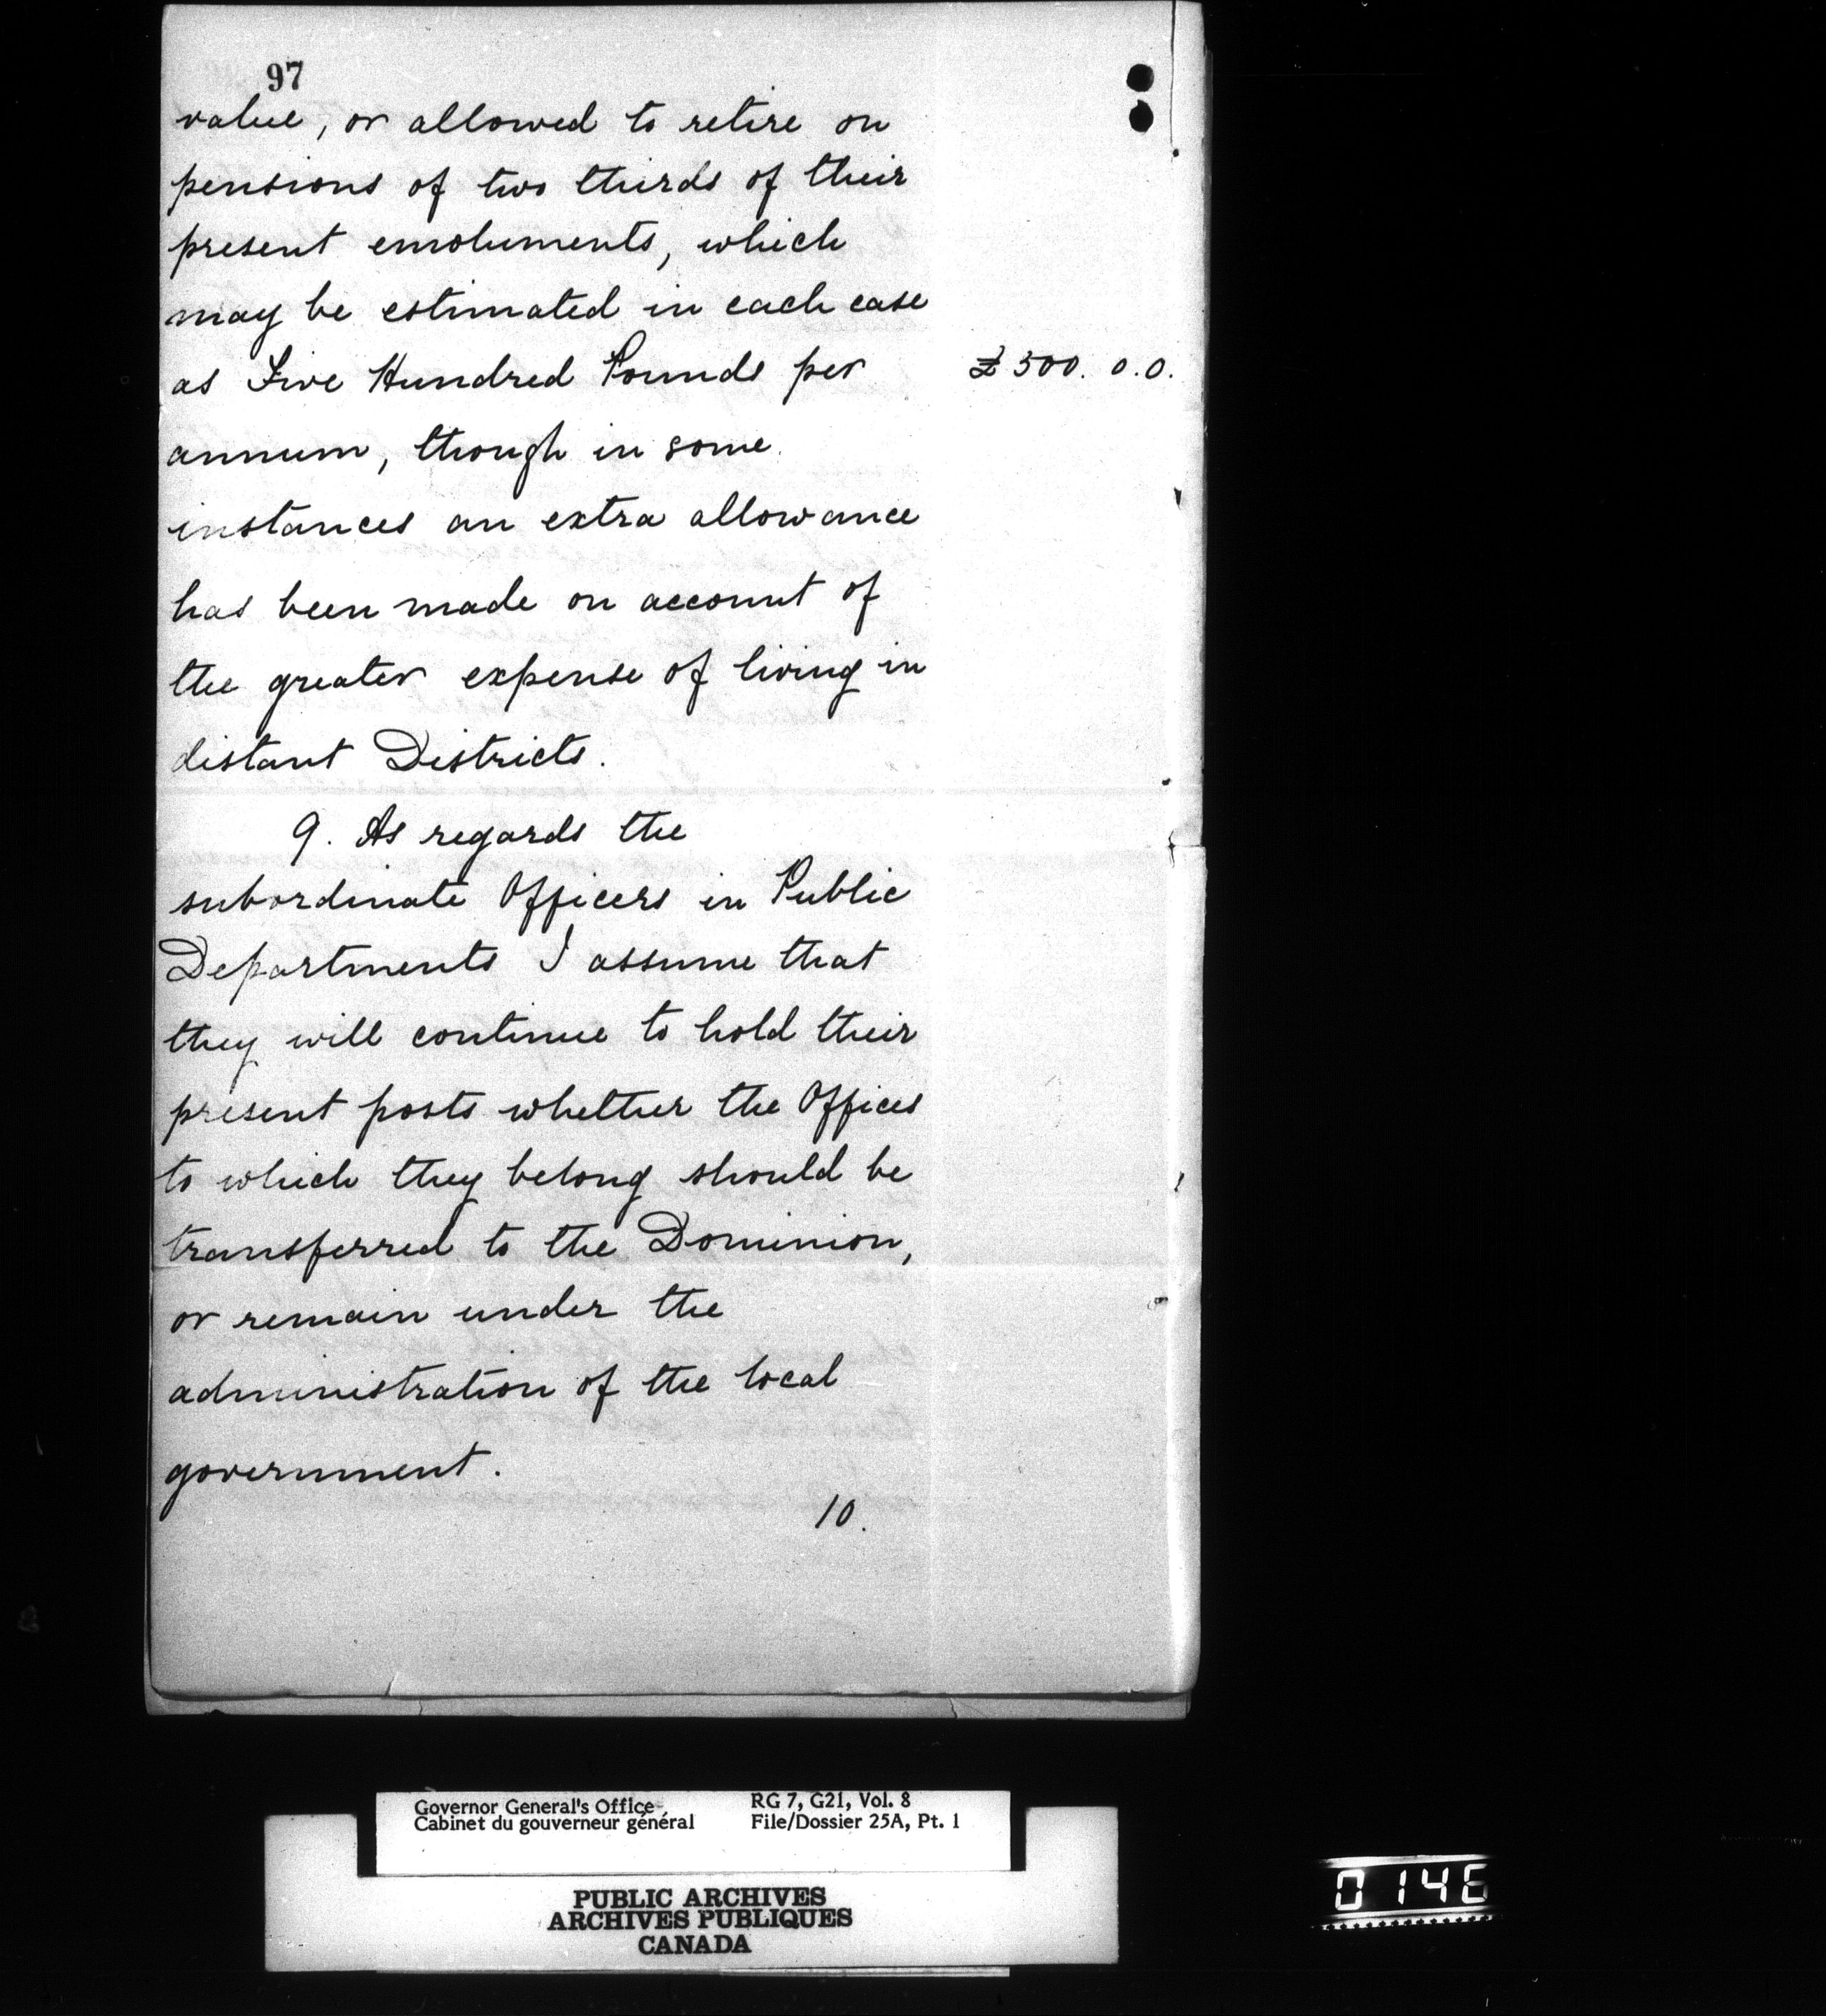 97
value, or allowed to retire on
pensions of two thirds of their
present emoluments, which
may be estimated in each case
as Five Hundred Pounds per
£500. 0. 0.
annum, though in some
instances an extra allowance
has been made on account of
the greater expense of living in
distant Districts.
9. As regards the
subordinate Officers in Public
Departments I assume that
they will continue to hold their
present posts whether the Offices
to which they belong should be
transferred to the Dominion,
or remain under the
administration of the local
government.
10.
Governor General's Office
Cabinet du gouverneur général
RG 7, G21, Vol. 8
File/Dossier 25A, Pt. 1
PUBLIC ARCHIVES
ARCHIVES PUBLIQUES
CANADA